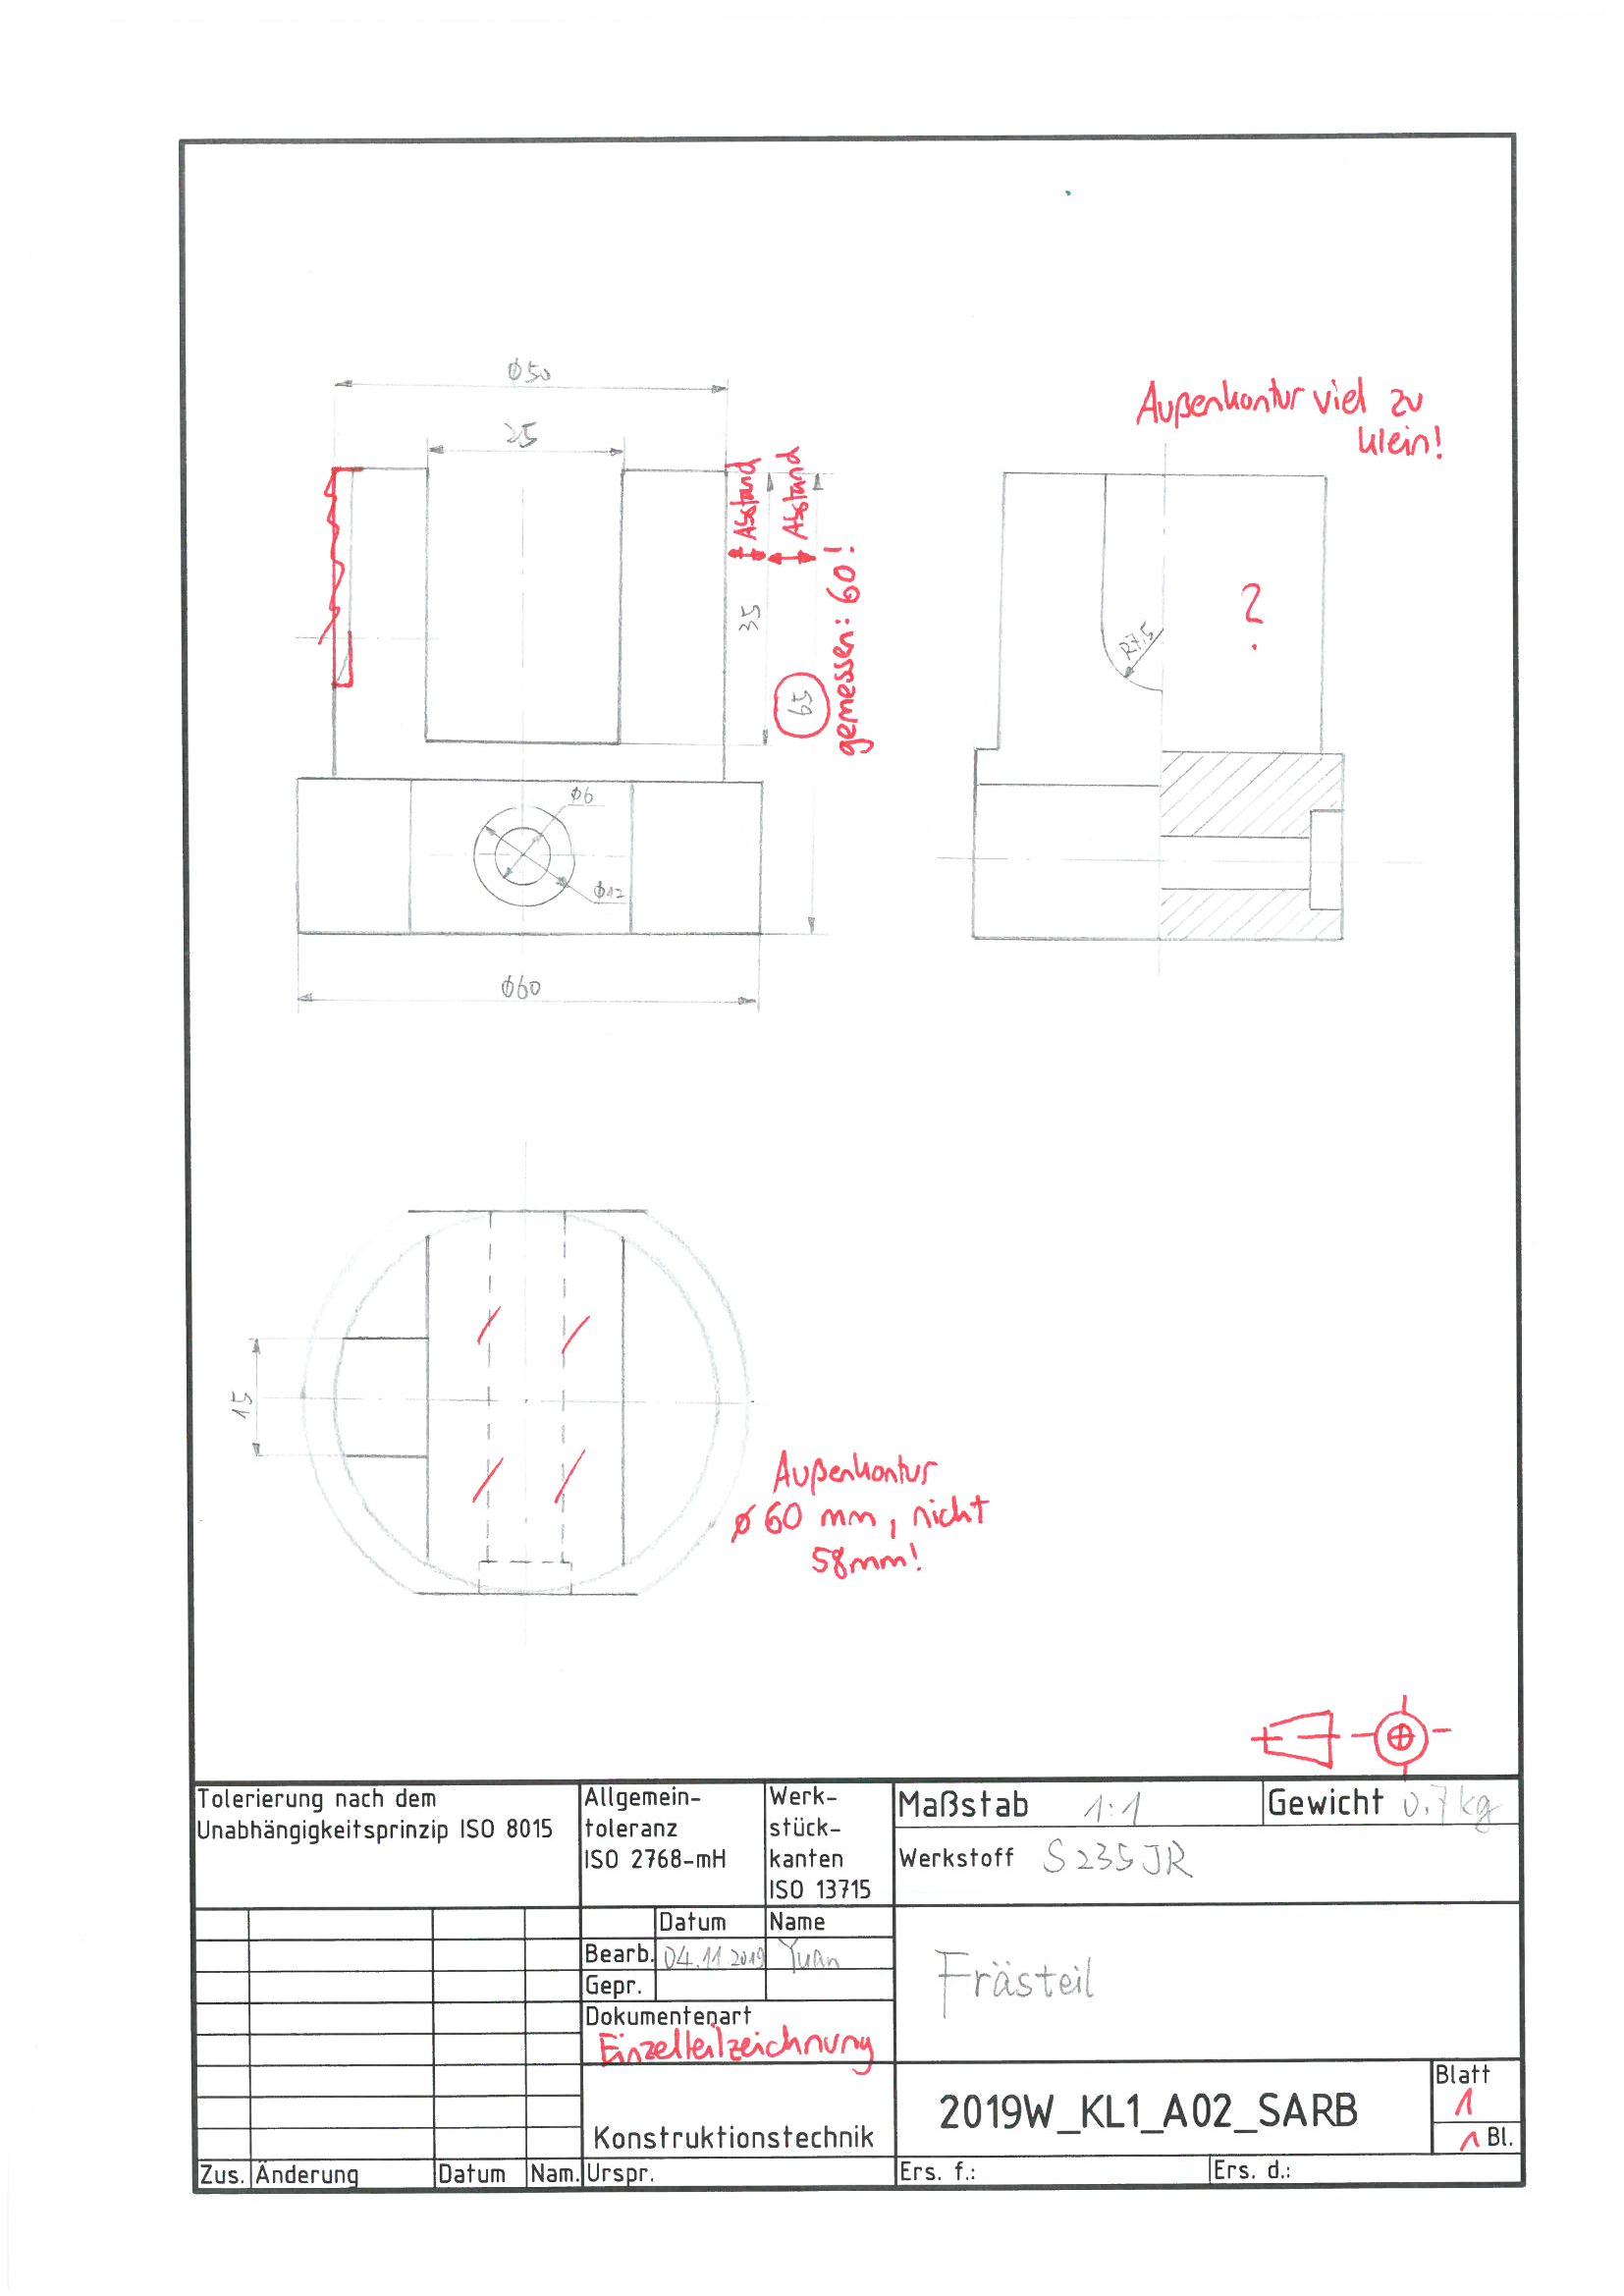 Ø50
25
Außenkontur viel zu
klein!
Abstand
Abstand
35
65
gemessen: 60!
?
R7,5
Ø6
Ø12
Ø60
15
Außenkontur
Ø 60 mm, nicht
58mm!
Tolerierung nach dem
Unabhängigkeitsprinzip ISO 8015
Allgemein-
toleranz
ISO 2768-mH
Werk-
stück-
kanten
ISO 13715
Maßstab 1:1
Gewicht 0.7kg
Werkstoff S235JR
Datum Name
Bearb. 04.11 2019 Yuan
Gepr.
Frästeil
Dokumentenart
Einzelteilzeichnung
Konstruktionstechnik
2019W_KL1_A02_SARB
Blatt
1
1 Bl.
Zus. Änderung Datum Nam. Urspr. Ers. f.: Ers. d.: